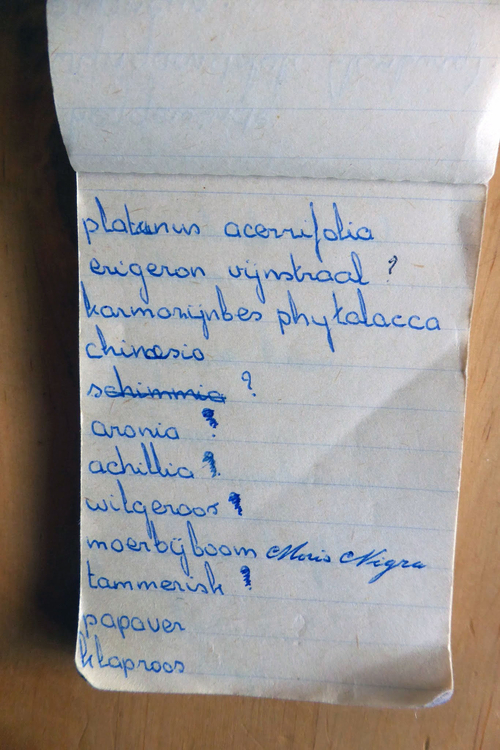 platanus acerrifolia
erigeron vijnstraal ?
karmozijnbes phytolacca
chinesio
schimmia ?
aronia ?
achillia ?
wilgeroos ?
moerbijboom Moris Nigra
tammerisk ?
papaver
klaproos